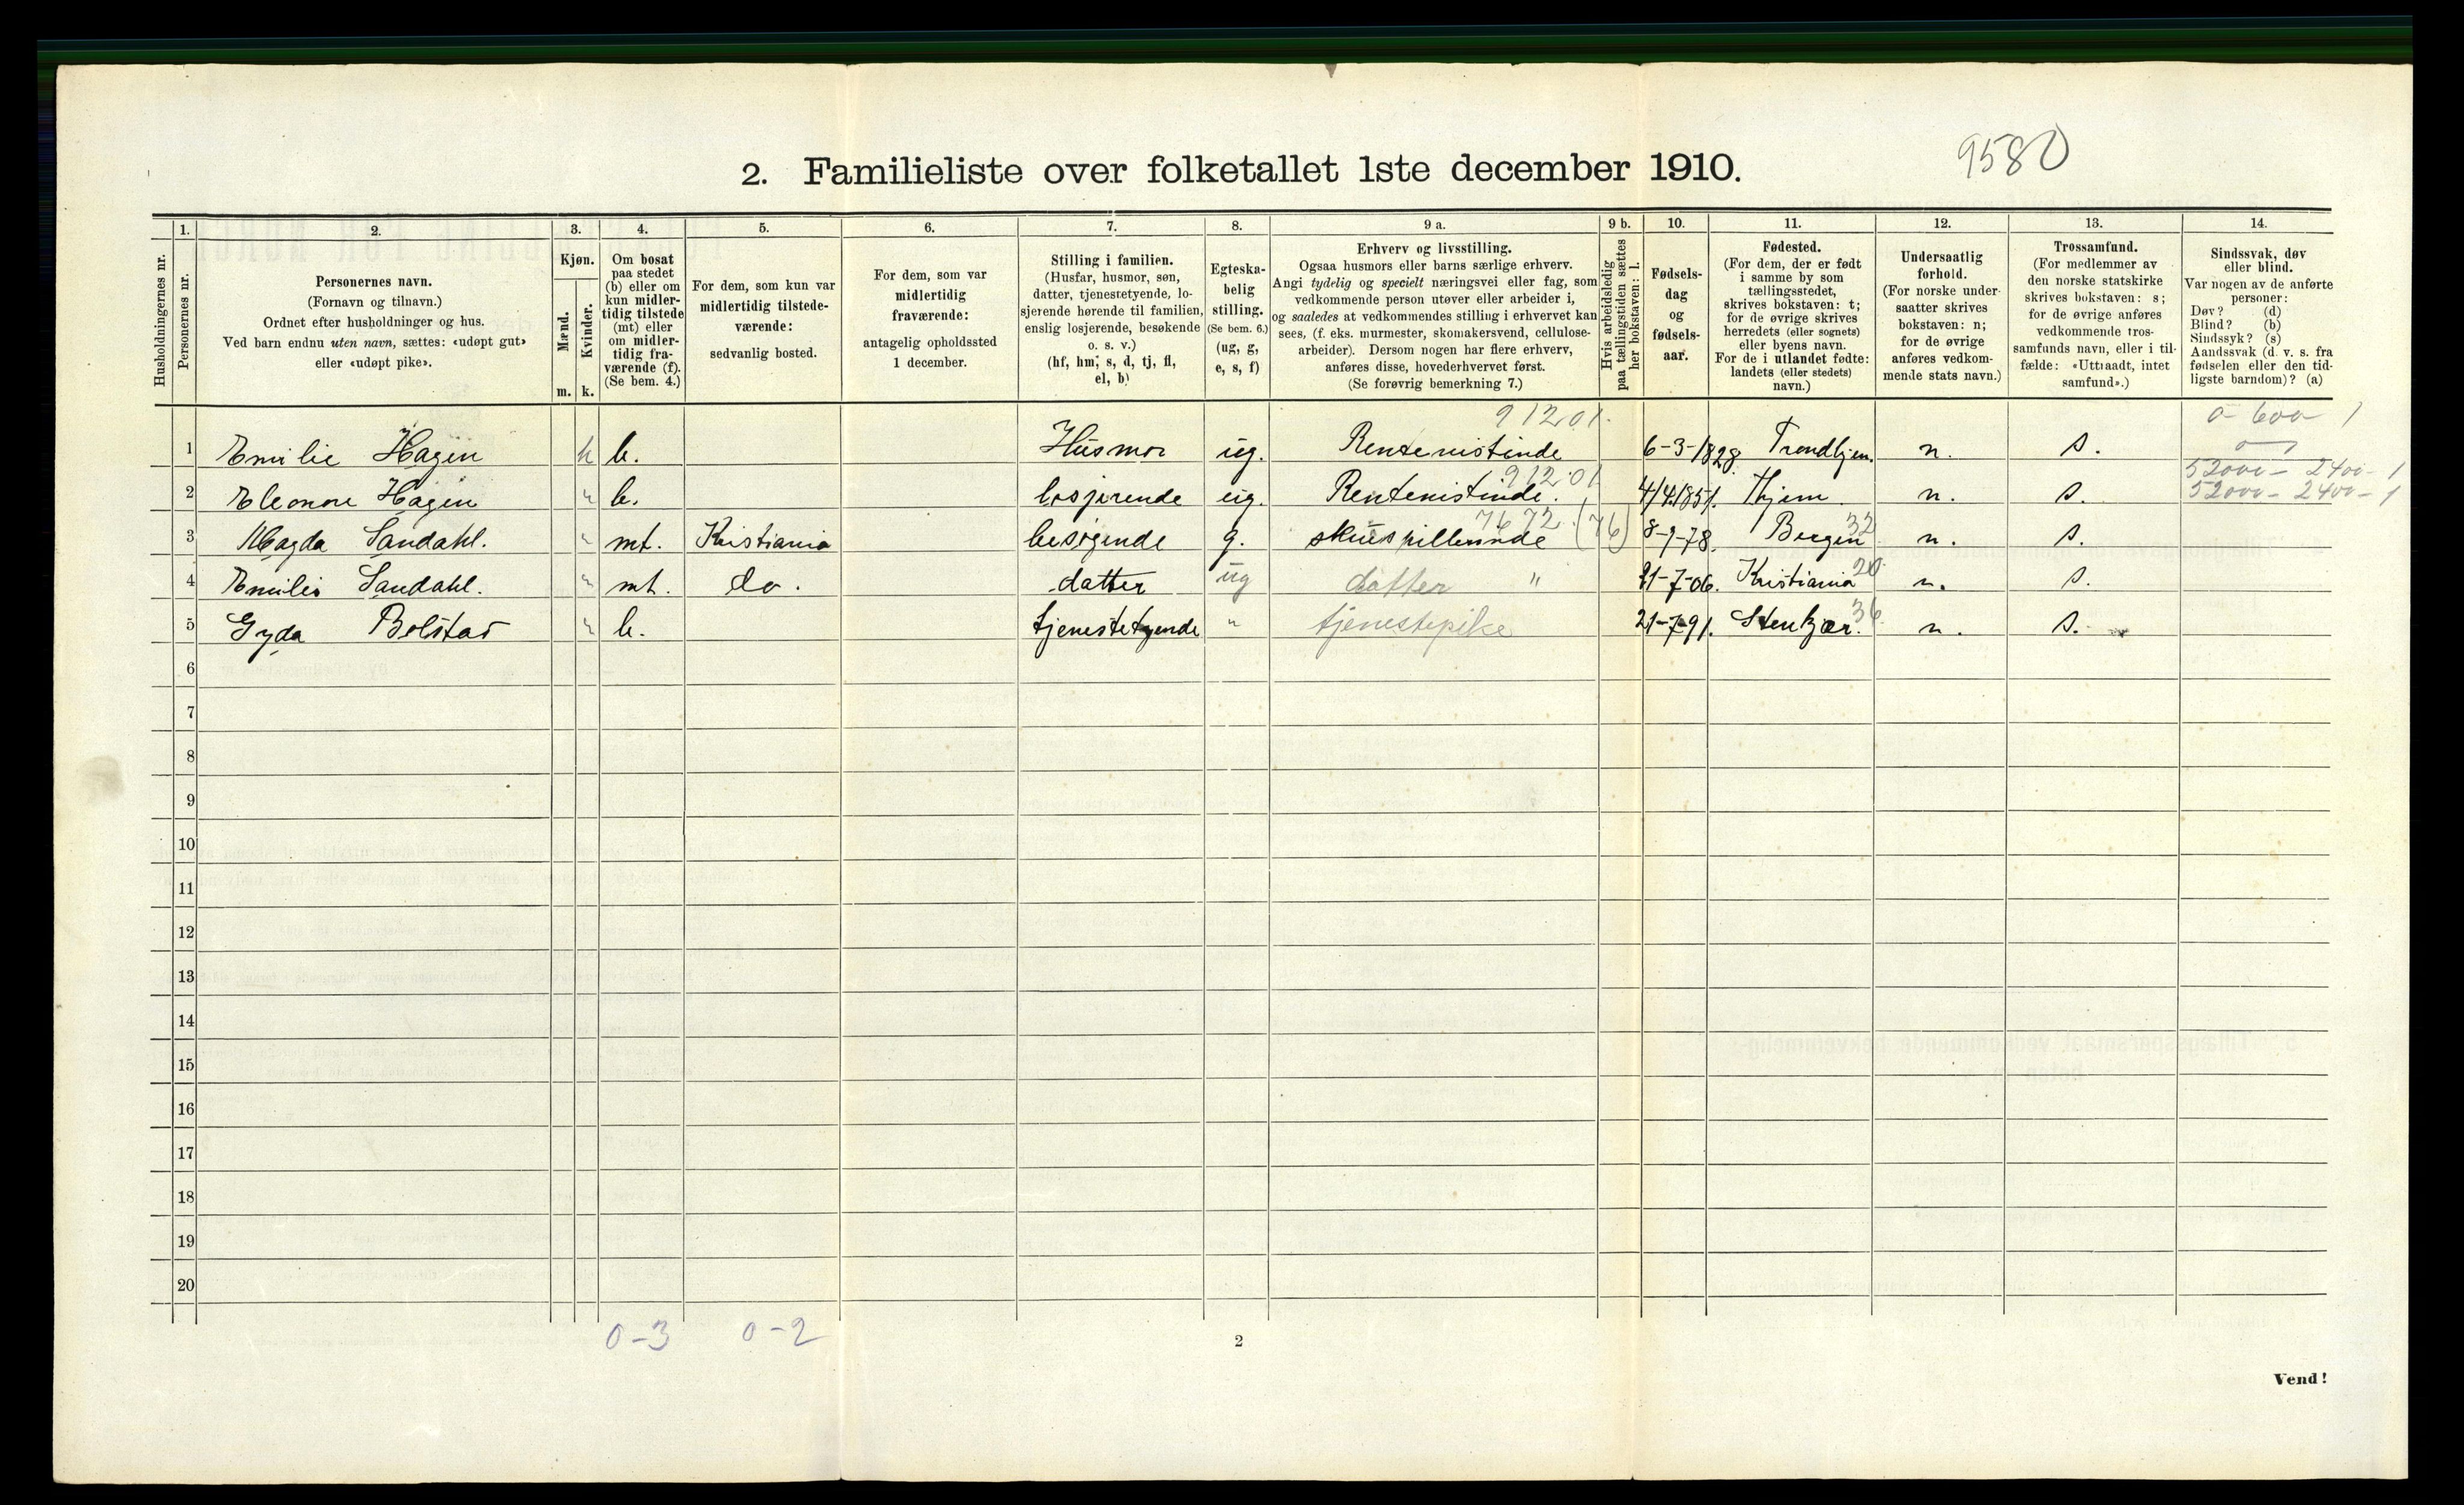 9580
2. Familieliste over folketallet 1ste december 1910.
Husholdningernes nr.
1.
Personernes nr.
2.
Personernes navn.
(Fornavn og tilnavn.)
Ordnet efter husholdninger og hus.
Ved barn endnu uten navn, sættes: «udøpt gut»
eller «udøpt pike».
3.
Kjøn.
Mænd.
Kvinder.
m. k.
4.
Om bosat
paa stedet
(b) eller om
kun midler-
tidig tilstede
(mt) eller
om midler-
tidig fra-
værende (f).
(Se bem. 4.)
5.
For dem, som kun var
midlertidig tilstede-
værende:
sedvanlig bosted.
6.
For dem, som var
midlertidig
fraværende:
antagelig opholdssted
1 december.
7.
Stilling i familien.
(Husfar, husmor, søn,
datter, tjenestetyende, lo-
sjerende hørende til familien,
enslig losjerende, besøkende
o. s. v.)
(hf, hm, s, d, tj, fl,
el, b)
8.
Egteska-
belig
stilling.
(Se bem. 6.)
(ug, g,
e, s, f)
9 a.
Erhverv og livsstilling.
Ogsaa husmors eller barns særlige erhverv.
Angi tydelig og specielt næringsvei eller fag, som
vedkommende person utøver eller arbeider i,
og saaledes at vedkommendes stilling i erhvervet kan
sees, (f. eks. murmester, skomakersvend, cellulose-
arbeider). Dersom nogen har flere erhverv,
anføres disse, hovederhvervet først.
(Se forøvrig bemerkning 7.)
9 b.
Hvis arbeidsledig
paa tællingstiden sættes
her bokstaven: l.
10.
Fødsels-
dag
og
fødsels-
aar.
11.
Fødested.
(For dem, der er født
i samme by som
tællingsstedet,
skrives bokstaven: t;
for de øvrige skrives
herredets (eller sognets)
eller byens navn.
For de i utlandet fødte:
landets (eller stedets)
navn.)
12.
Undersaatlig
forhold.
(For norske under-
saatter skrives
bokstaven: n;
for de øvrige
anføres vedkom-
mende stats navn.)
13.
Trossamfund.
(For medlemmer av
den norske statskirke
skrives bokstaven: s;
for de øvrige anføres
vedkommende tros-
samfunds navn, eller i til-
fælde: «Uttraadt, intet
samfund».)
14.
Sindssvak, døv
eller blind.
Var nogen av de anførte
personer:
Døv? (d)
Blind? (b)
Sindssyk? (s)
Aandssvak (d. v. s. fra
fødselen eller den tid-
ligste barndom)? (a)
91201. 0- 600 1
1 Emilie Hagen k b. Husmor ug. Rentenistinde 6-3-1828. Trondhjem. n. s.
91201 52000- 2400- 1
2 Eleonore Hagen " b. losjerende ug. Rentenistinde. 4/4 1851. Thjem n. s. 52000- 2400- 1
7672 (76) 32
3 Magda Sandahl. " mt. Kristiania besøgende g. skuespillerinde 8-9-78. Bergen n. s.
4 Emilie Sandahl. " mt. do. datter ug datter " 21-7-06. Kristiania 20 n. s.
5 Gyda Bolstad " b. tjenestetyende " tjenestepike 21-7-91. Stenkjær. 36 n. s.
6
7
8
9
10
11
12
13
14
15
16
17
18
19
20
0-3 0-2
2
Vend!